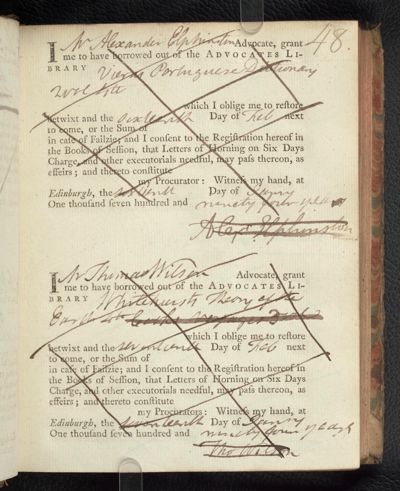 48.
I Mr Alexander Elphinston Advocate, grant
me to have borrowed out of the ADVOCATES LI-
BRARY Vieras Portuguese Dictionary
2 vol 4to
which I oblige me to reſtore
betwixt and the sixteenth Day of Feb next
to come, or the Sum of
in caſe of Failzie; and I conſent to the Regiſtration hereof in
the Books of Seſſion, that Letters of Horning on Six Days
Charge, and other executorials needful, may paſs thereon, as
effeirs; and thereto conſtitute
my Procurator: Witneſs my hand, at
Edinburgh, the Day of Janry
One thouſand ſeven hundred and ninety four years
Alexr Elphinston
I Mr Thomas Wilson Advocate, grant
me to have borrowed out of the ADVOCATES LI-
BRARY Whitehursts Theory of the
Earth 4to
which I oblige me to reſtore
betwixt and the seventeenth Day of Feb next
to come, or the Sum of
in caſe of Failzie; and I conſent to the Regiſtration hereof in
the Books of Seſſion, that Letters of Horning on Six Days
Charge, and other executorials needful, may paſs thereon, as
effeirs; and thereto conſtitute
my Procurators: Witneſs my hand, at
Edinburgh, the seventeenth Day of Janry
One thouſand ſeven hundred and ninety four years
Tho Wilson